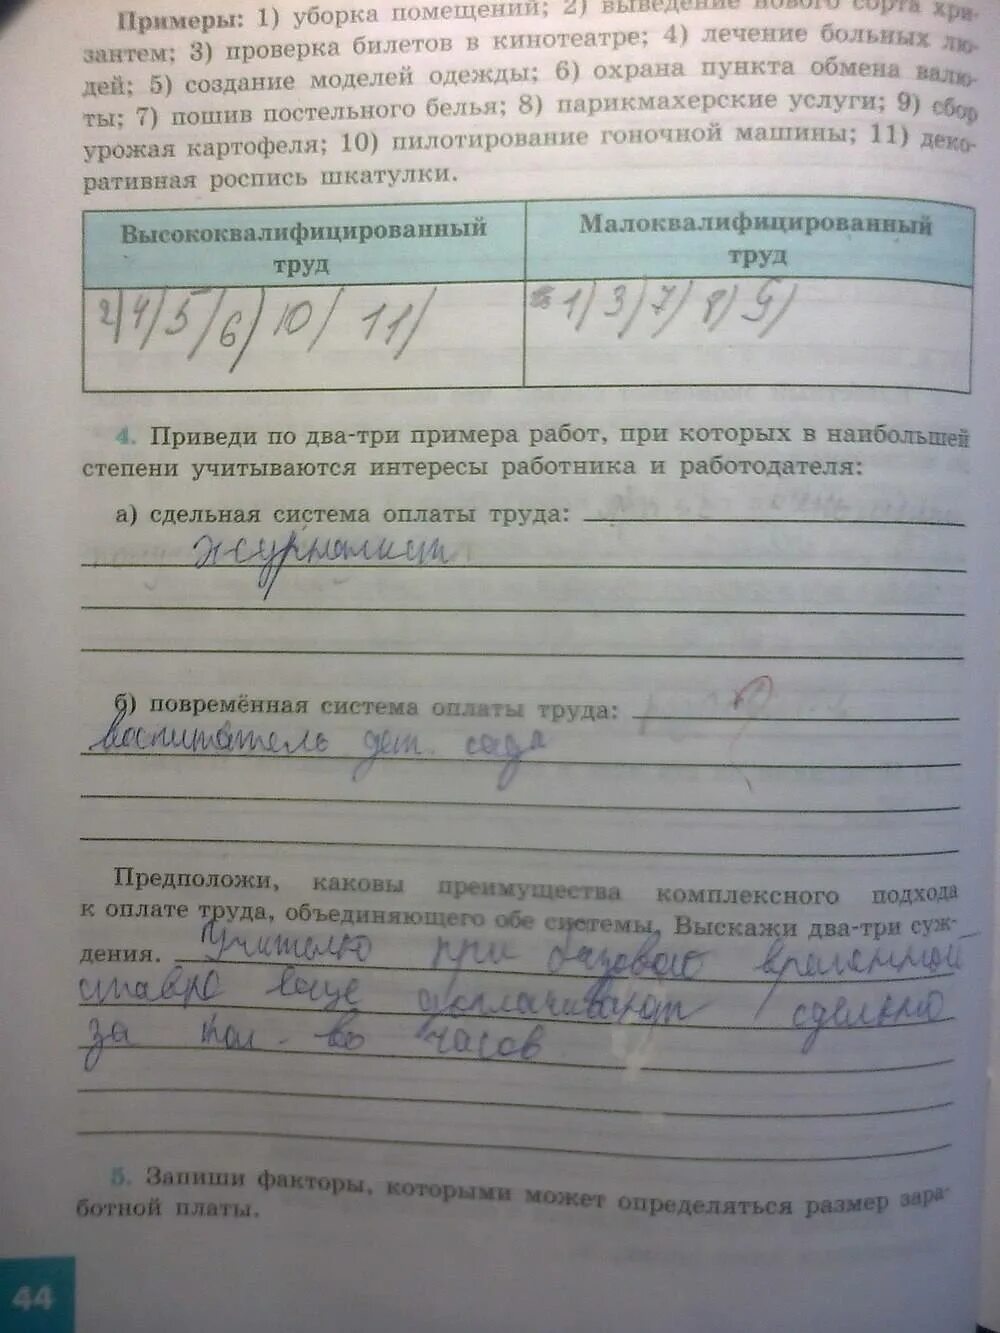 Примеры: 1) уборка помещений; 2) выведение нового сорта хри-
зантем; 3) проверка билетов в кинотеатре; 4) лечение больных лю-
дей; 5) создание моделей одежды; 6) охрана пункта обмена валю-
ты; 7) пошив постельного белья; 8) парикмахерские услуги; 9) сбор
урожая картофеля; 10) пилотирование гоночной машины; 11) деко-
ративная роспись шкатулки.
Высококвалифицированный
труд
Малоквалифицированный
труд
2) 4) 5) 6) 10) 11)
1) 3) 7) 8) 9)
4. Приведи по два-три примера работ, при которых в наибольшей
степени учитываются интересы работника и работодателя:
а) сдельная система оплаты труда:
журналист
б) повремённая система оплаты труда:
воспитатель дет. сада
Предположи, каковы преимущества комплексного подхода
к оплате труда, объединяющего обе системы. Выскажи два-три суж-
дения. Учителю при базовой временной
ставке еще доплачивают сдельно
за кол-во часов
5. Запиши факторы, которыми может определяться размер зара-
ботной платы.
44